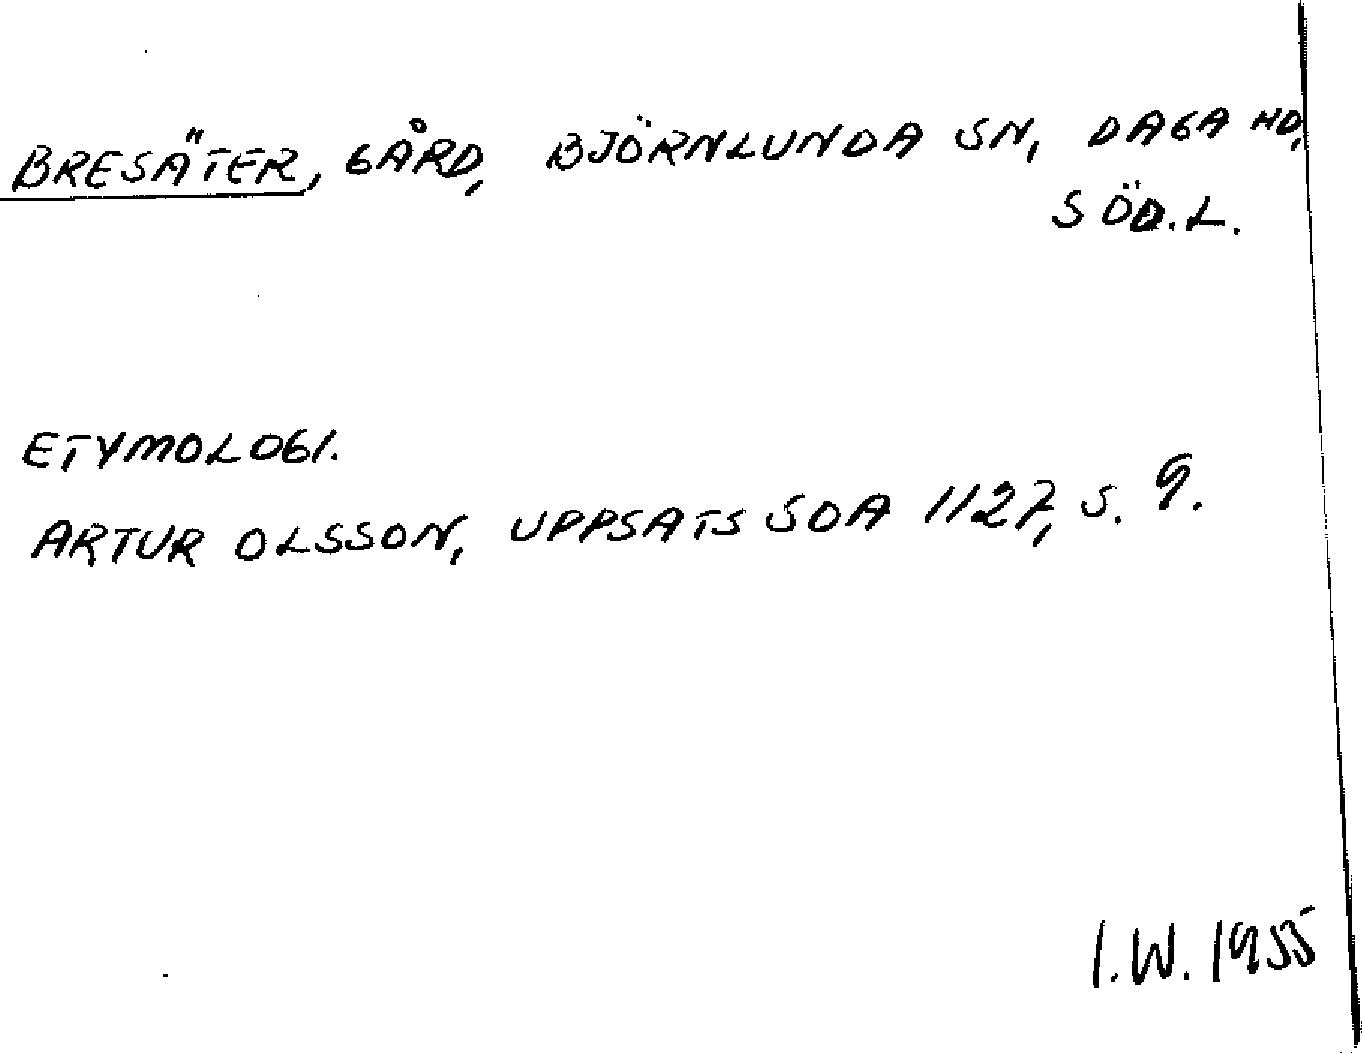 BRESÄTER, GÅRD, BJÖRNLUNDA SN, DAGA HD,
SÖD.L.
ETYMOLOGI.
ARTUR OLSSON, UPPSATS SOA 1127, S. 9.
I.W. 1955